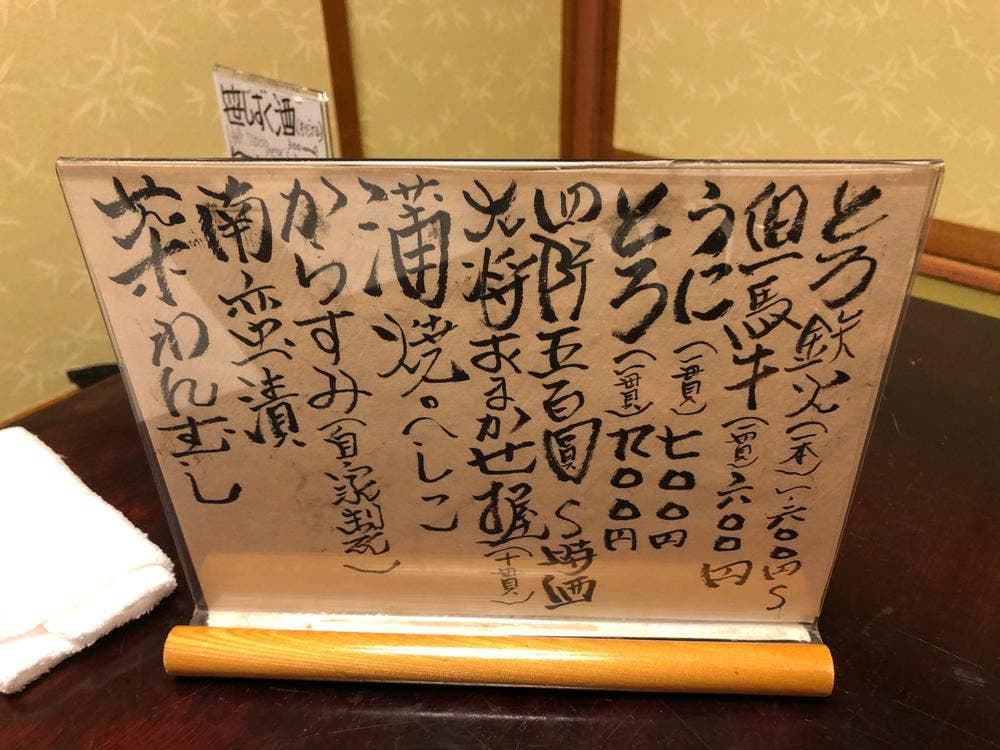 とろ鉄火(一本)一、六〇〇円〜
但馬牛(一貫)六〇〇円
うに(一貫)七〇〇円
とろ(一貫)九〇〇円
四阡五百圓〜時価
大将おまかせ握(十貫)
蒲焼。へしこ
からすみ(自家製)
南蛮漬
茶わんむし
笹じるく酒